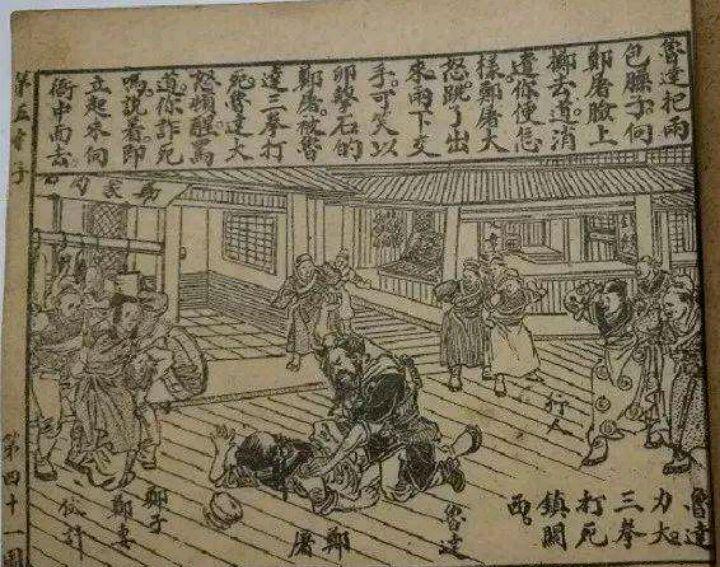 魯達把兩
包臊子向
鄭屠臉上
擲去道消
遣你便怎
樣鄭屠大
怒跳了出
來兩下交
手可笑以
卵擊石的
鄭屠被魯
達三拳打
死魯達大
怒頓醒罵
道你詐死
嗎說着即
立起來向
街中而去
第五才子
魯達
力大
三拳
打死
鎮關
西
行人
魯達
鄭屠
鄭子
鄭妻
伙計
第四十一圖